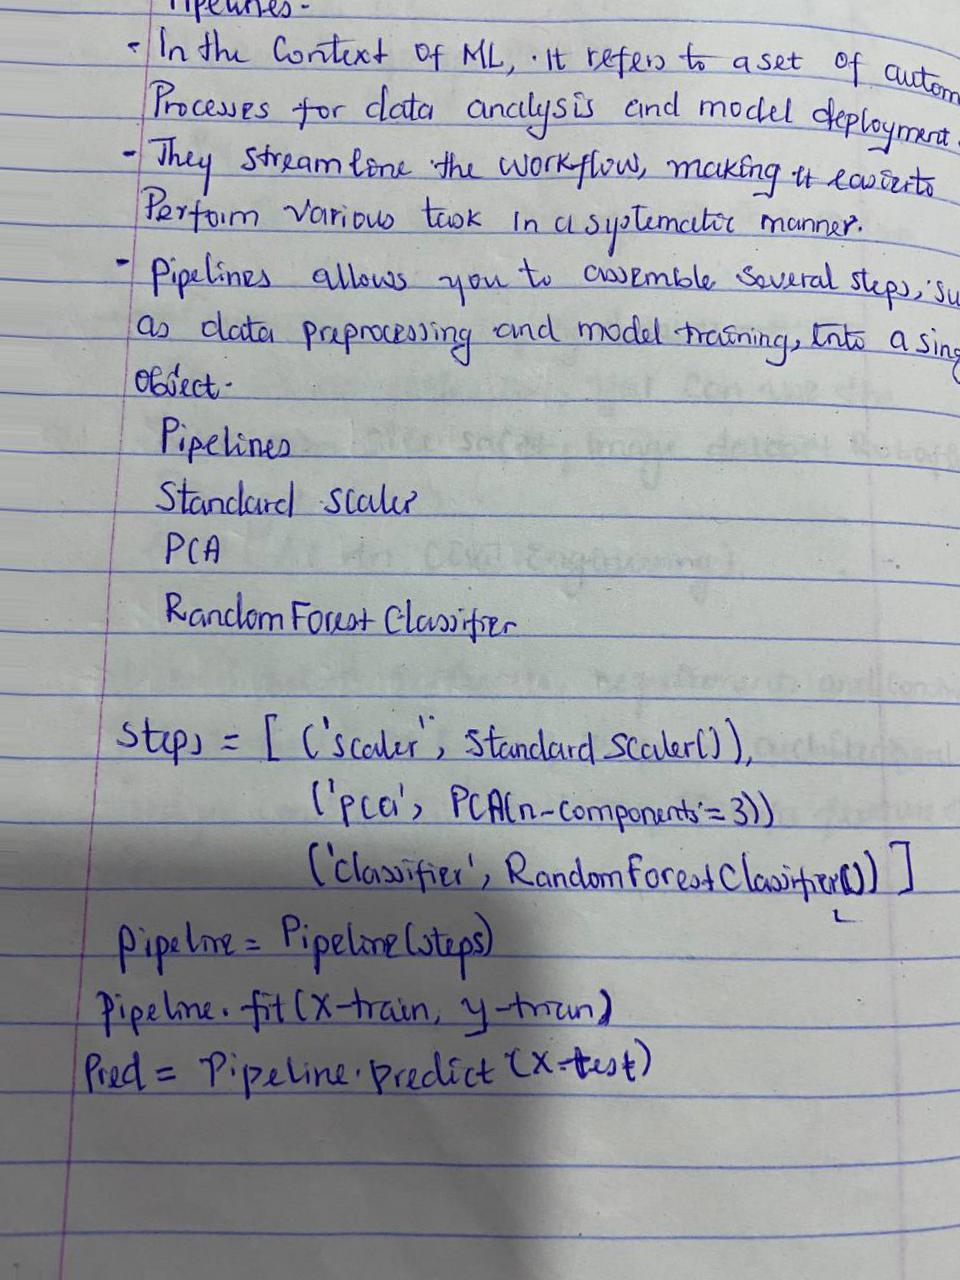 Pipelines -
- In the Context of ML, it refers to a set of autom
Processes for data analysis and model deployment.
- They streamline the workflow, making it easier to
Perform various task in a systematic manner.
- Pipelines allows you to assemble several steps, su
as data preprocessing and model training, into a sing
object.
Pipelines
Standard scaler
PCA
RandomForestClassifier
steps = [ ('scaler', standard scaler()),
('pca', PCA(n-components=3))
('classifier', RandomForestClassifier())]
pipeline = Pipeline(steps)
Pipeline.fit(X-train, y-train)
Pred = Pipeline.predict(X-test)